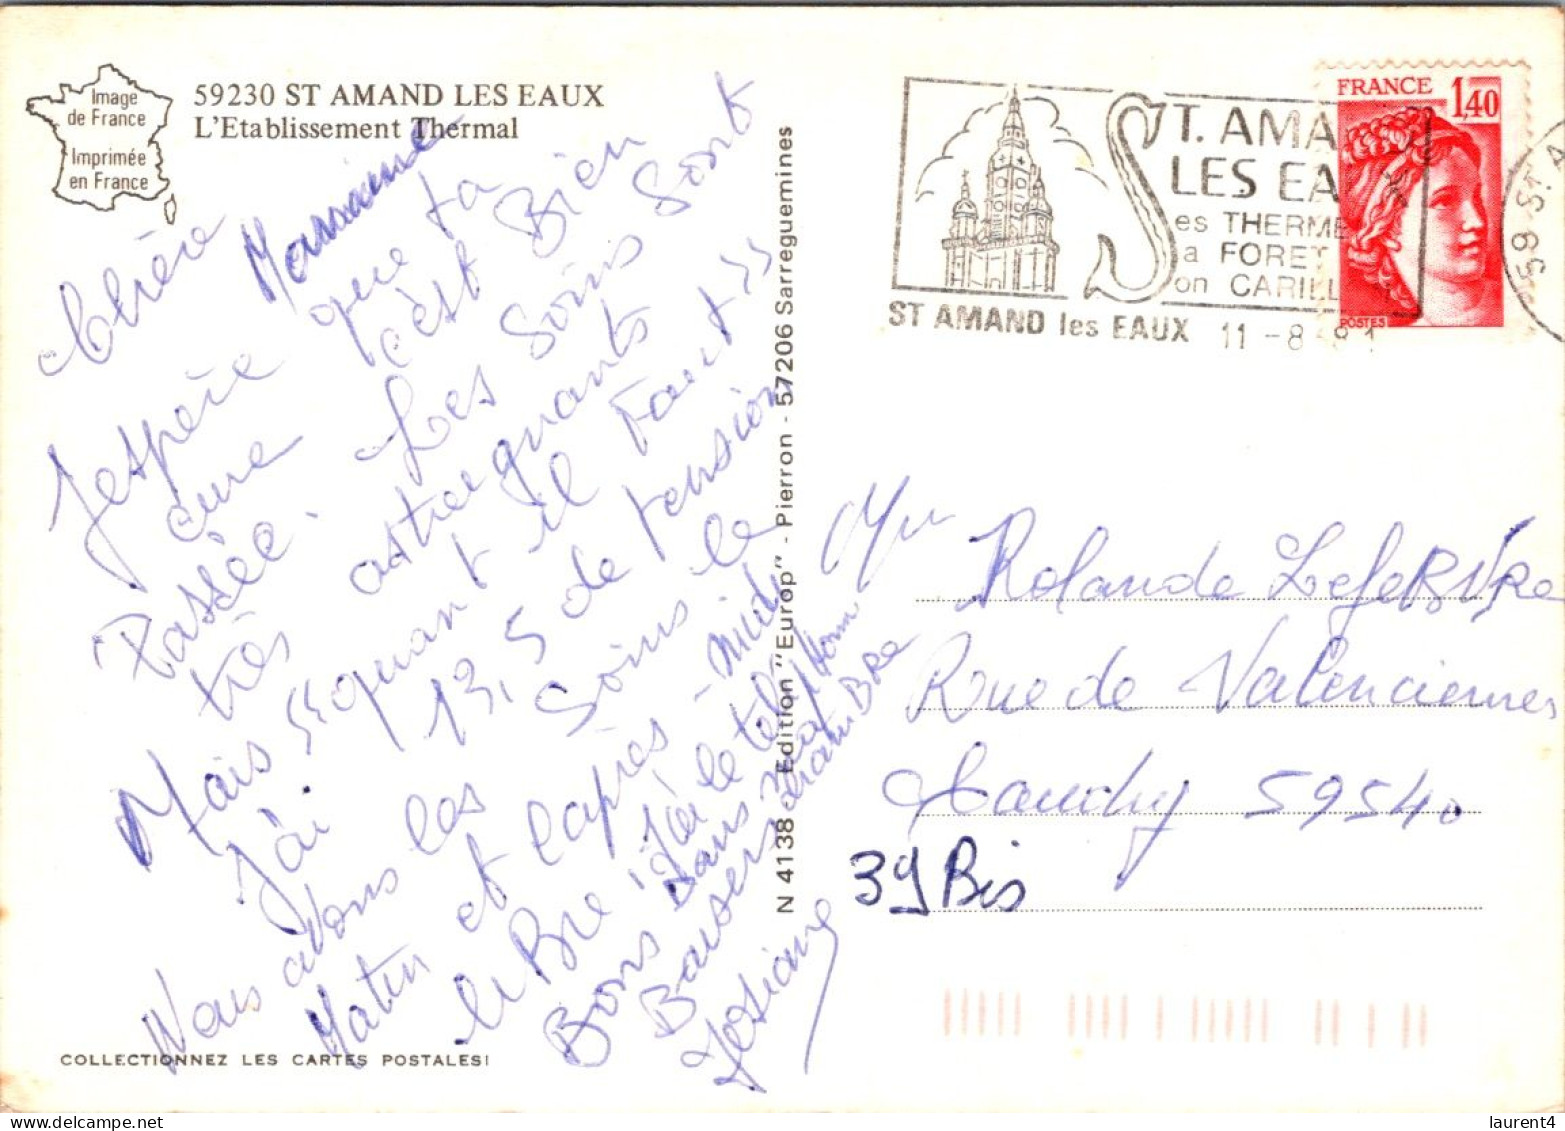 Image
de France
Imprimée
en France
59230 ST AMAND LES EAUX
L'Etablissement Thermal
Chère Maman
Jespère que ta
cure cèst Bien
Passée. Les Soins Sont
très astreignants
Mais "quant il Faut"
Jài 13,5 de tension
Nous avons les Soins le
Matin et laprès-midi
libre Jài le téléphone
dans ma chamBRe
Bons Baisers
Josiane
COLLECTIONNEZ LES CARTES POSTALES!
N 4138 Edition "Europ" - Pierron - 57206 Sarreguemines
ST. AMA
LES EA
es THERME
a FORET
on CARILL
ST AMAND les EAUX 11 - 8 - 81
FRANCE 1,40
POSTES
59 ST A
Rolande LefeBVRe
Rue de Valenciennes
Caudry 59540
39 Bis
laurent4